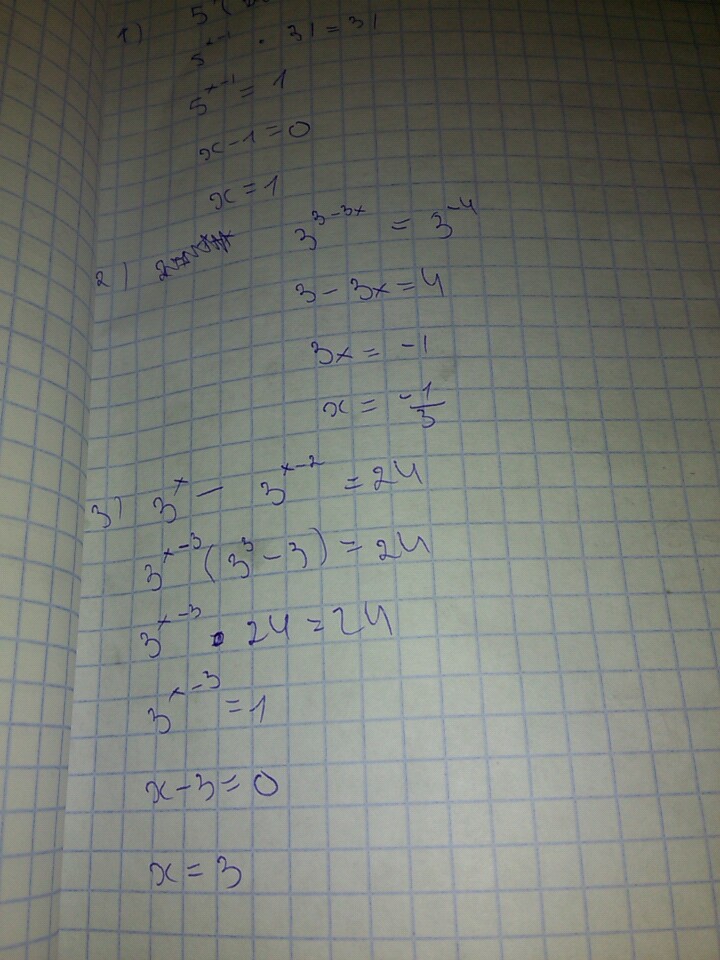 1) 5
5^{x-1} · 31 = 31
5^{x-1} = 1
x - 1 = 0
x = 1
2) 3^{3-3x} = 3^{-4}
3 - 3x = 4
3x = -1
x = \frac{-1}{3}
3) 3^x - 3^{x-2} = 24
3^{x-3} (3^3 - 3) = 24
3^{x-3} · 24 = 24
3^{x-3} = 1
x - 3 = 0
x = 3